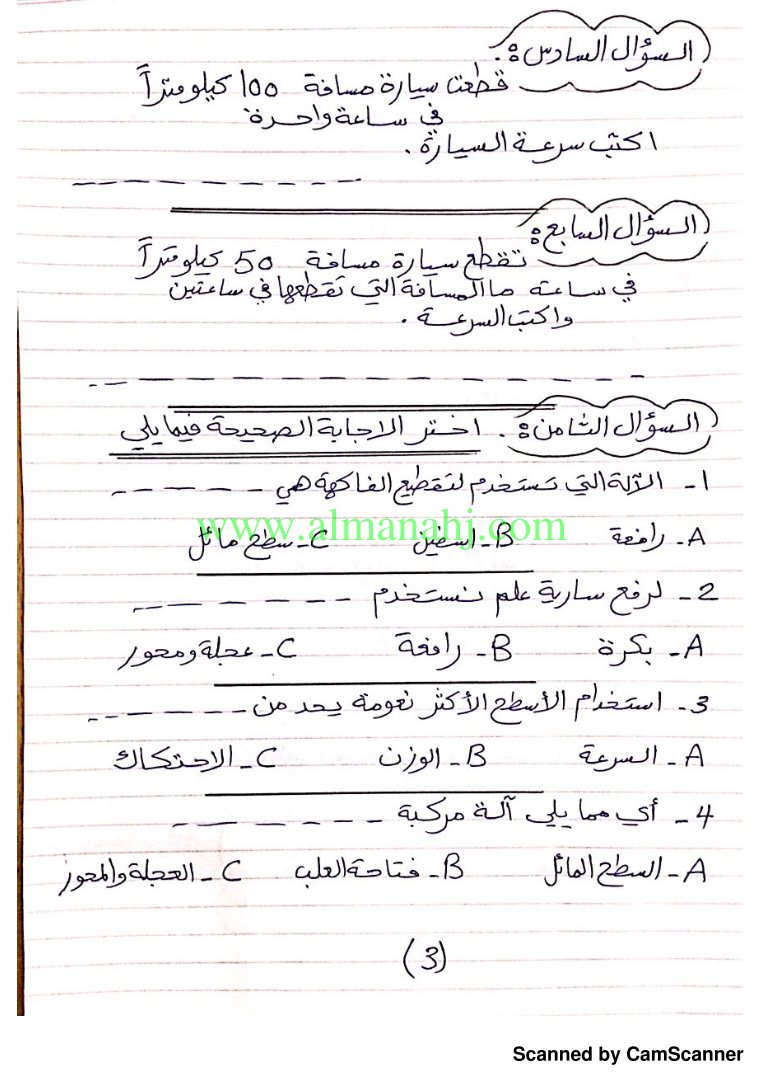 السؤال السادس :
قطعت سيارة مسافة 100 كيلومتراً
في ساعة واحدة
اكتب سرعة السيارة .
السؤال السابع :
تقطع سيارة مسافة 50 كيلومتراً
في ساعته ما المسافة التي تقطعها في ساعتين
واكتب السرعة .
السؤال الثامن : . اختر الاجابة الصحيحة فيما يلي
1 - الآلة التي تستخدم لتقطيع الفاكهة هي
www.almanahj.com
A - رافعة B - اسفين C - سطح مائل
2 - لرفع سارية علم نستخدم
A - بكرة B - رافعة C - عجلة ومحور
3 - استخدام الأسطح الأكثر نعومة يحد من
A - السرعة B - الوزن C - الاحتكاك
4 - أي مما يلي آلة مركبة
A - السطح المائل B - فتاحة العلب C - العجلة والمحور
(3)
Scanned by CamScanner